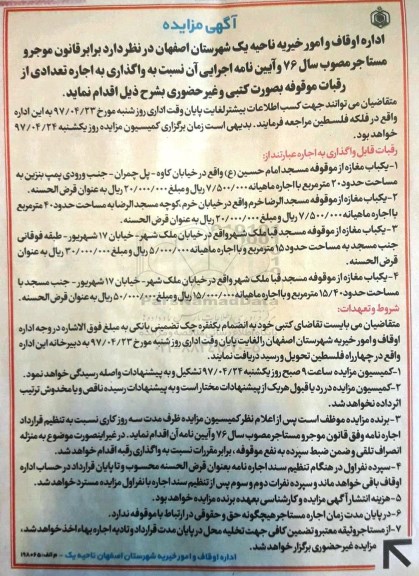 آگهی مزایده
اداره اوقاف و امور خیریه ناحیه یک شهرستان اصفهان در نظر دارد برابر قانون موجر و
مستاجر مصوب سال ۷۶ و آیین نامه اجرایی آن نسبت به واگذاری به اجاره تعدادی از
رقبات موقوفه بصورت کتبی و غیر حضوری بشرح ذیل اقدام نماید.
متقاضیان می توانند جهت کسب اطلاعات بیشتر لغایت پایان وقت اداری روز شنبه مورخ ۹۷/۰۴/۲۳ به این اداره
واقع در فلکه فلسطین مراجعه فرمایند. بدیهی است زمان برگزاری کمیسیون مزایده روز یکشنبه ۹۷/۰۴/۲۴
خواهد بود.
رقبات قابل واگذاری به اجاره عبارتند از:
۱-یکباب مغازه از موقوفه مسجد امام حسین (ع) واقع در خیابان کاوه - پل چمران - جنب ورودی پمپ بنزین به
مساحت حدود ۲۰ متر مربع با اجاره ماهیانه ۷/۵۰۰/۰۰۰ ریال و مبلغ ۲۰/۰۰۰/۰۰۰ ریال به عنوان قرض الحسنه.
۲-یکباب مغازه از موقوفه مسجد الرضا خرم واقع در خیابان خرم، کوچه مسجد الرضا به مساحت حدود ۴۰ متر مربع
با اجاره ماهیانه ۷/۵۰۰/۰۰۰ ریال و مبلغ ۲۰/۰۰۰/۰۰۰ ریال به عنوان قرض الحسنه.
۳-یکباب مغازه از موقوفه مسجد قبا ملک شهر واقع در خیابان ملک شهر- خیابان ۱۷ شهریور- طبقه فوقانی
جنب مسجد به مساحت حدود ۱۵ متر مربع و با اجاره ماهیانه ۵/۰۰۰/۰۰۰ ریال و مبلغ ۳۰/۰۰۰/۰۰۰ ریال به عنوان
قرض الحسنه.
۴-یکباب مغازه از موقوفه مسجد قبا ملک شهر واقع در خیابان ملک شهر - خیابان ۱۷ شهریور- جنب مسجد با
مساحت حدود ۱۵/۴۰ متر مربع و با اجاره ماهیانه ۱۵/۰۰۰/۰۰۰ ریال و مبلغ ۵۰/۰۰۰/۰۰۰ ریال به عنوان قرض الحسنه.
شروط و تعهدات:
متقاضیان می بایست تقاضای کتبی خود به انضمام یکفقره چک تضمینی بانکی به مبلغ فوق الاشاره در وجه اداره
اوقاف و امور خیریه شهرستان اصفهان را لغایت پایان وقت اداری روز شنبه مورخ ۹۷/۰۴/۲۳ به دبیرخانه این اداره
واقع در چهارراه فلسطین تحویل و رسید دریافت نمایند.
۱-کمیسیون مزایده ساعت ۹ صبح روز یکشنبه ۹۷/۰۴/۲۴ تشکیل و به پیشنهادات واصله رسیدگی خواهد نمود.
۲-کمیسیون مزایده در رد یا قبول هر یک از پیشنهادات مختار است و به پیشنهادات رسیده ناقص و یا مخدوش ترتیب
اثر داده نخواهد شد.
۳-برنده مزایده موظف است پس از اعلام نظر کمیسیون مزایده ظرف مدت سه روز کاری نسبت به تنظیم قرارداد
اجاره نامه وفق قانون موجر و مستاجر مصوب سال ۷۶ و آیین نامه آن اقدام نماید. در غیر اینصورت موضوع به منزله
انصراف تلقی و ضمن ضبط سپرده به نفع موقوفه، برابر مقررات نسبت به واگذاری رقبه اقدام خواهد شد.
۴-سپرده نفر اول در هنگام تنظیم سند اجاره نامه بعنوان قرض الحسنه محسوب و تا پایان قرارداد در حساب اداره
اوقاف باقی خواهد ماند و سپرده نفرات دوم و سوم پس از تنظیم سند اجاره با نفر اول مزایده مسترد خواهد شد.
۵-هزینه انتشار آگهی مزایده و کارشناسی بعهده برنده مزایده خواهد بود.
۶-در پایان مدت زمان اجاره مستاجر هیچگونه حق و حقوقی در ارتباط با موقوفه ندارد.
۷-از مستاجر وثیقه معتبر و تضمین کافی جهت تخلیه محل در پایان مدت قرارداد و تادیه اجاره بهاء اخذ خواهد شد.
مزایده غیر حضوری برگزار خواهد شد.
اداره اوقاف و امور خیریه شهرستان اصفهان ناحیه یک -